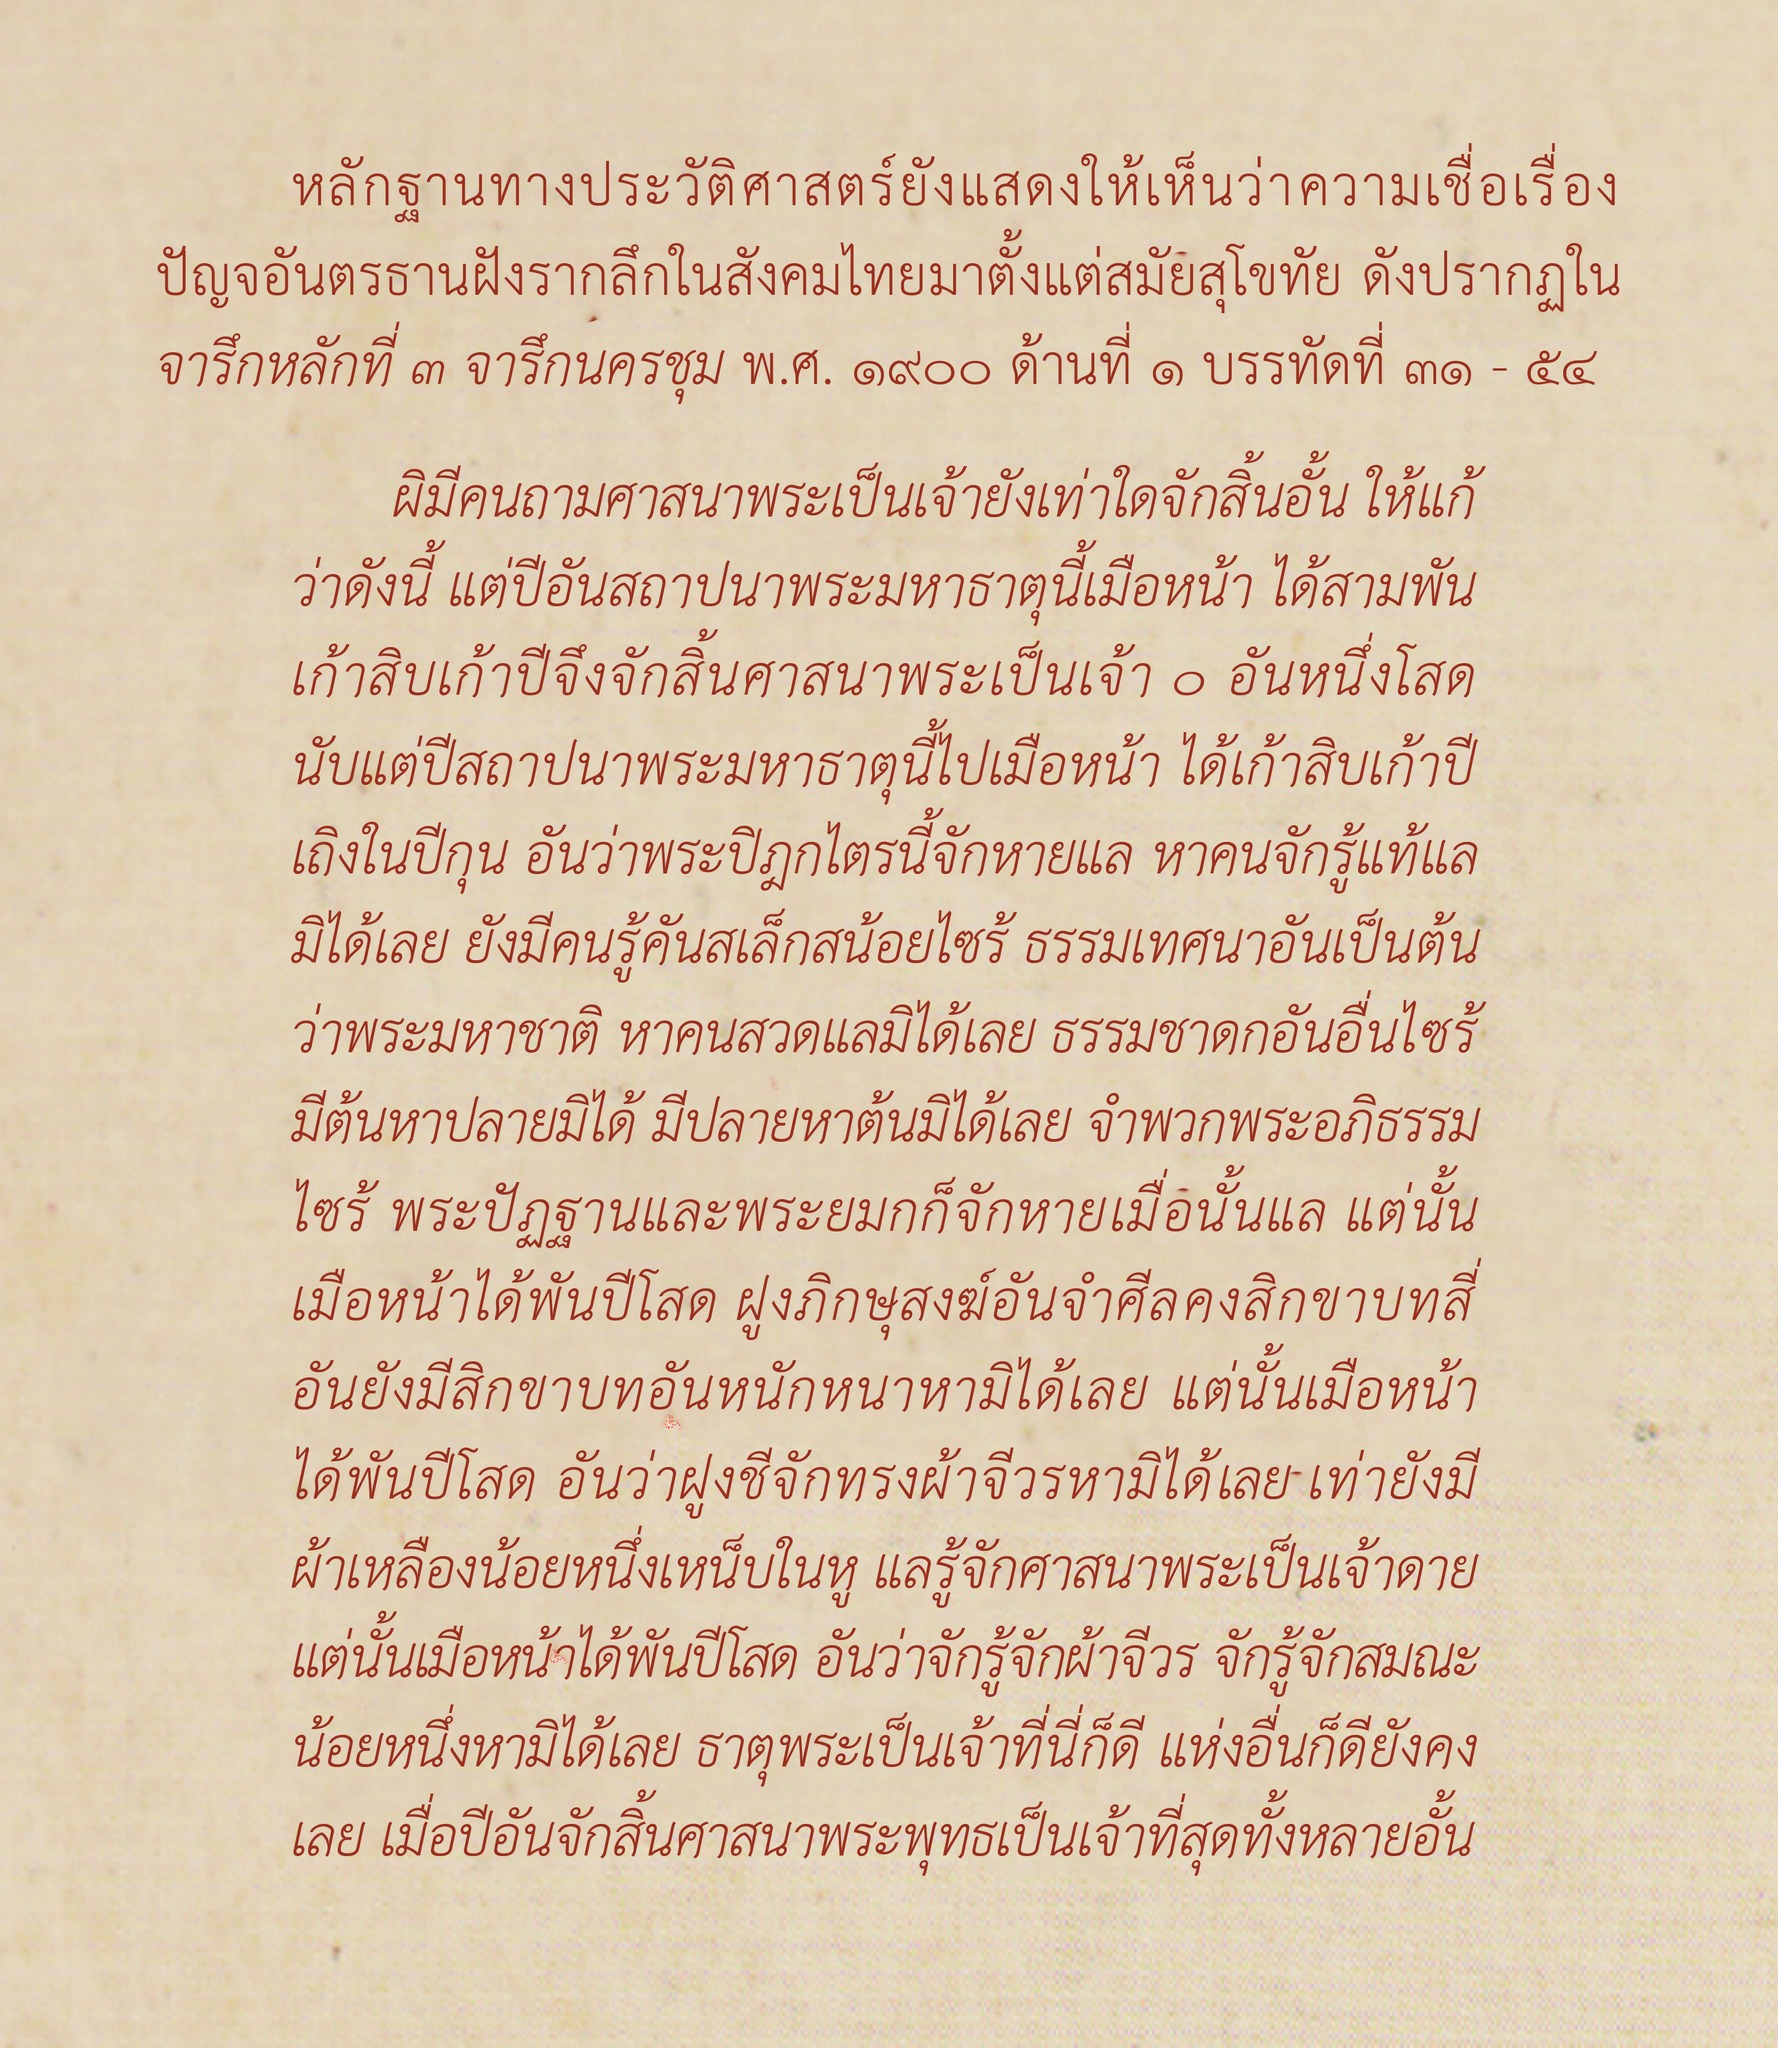 หลักฐานทางประวัติศาสตร์ยังแสดงให้เห็นว่าความเชื่อเรื่อง
ปัญจอันตรธานฝังรากลึกในสังคมไทยมาตั้งแต่สมัยสุโขทัย ดังปรากฏใน
จารึกหลักที่ ๓ จารึกนครชุม พ.ศ. ๑๙๐๐ ด้านที่ ๑ บรรทัดที่ ๓๑ - ๕๔
ผิมีคนถามศาสนาพระเป็นเจ้ายังเท่าใดจักสิ้นอั้น ให้แก้
ว่าดังนี้ แต่ปีอันสถาปนาพระมหาธาตุนี้เมือหน้า ได้สามพัน
เก้าสิบเก้าปีจึงจักสิ้นศาสนาพระเป็นเจ้า ๐ อันหนึ่งโสด
นับแต่ปีสถาปนาพระมหาธาตุนี้ไปเมือหน้า ได้เก้าสิบเก้าปี
เถิงในปีกุน อันว่าพระปิฎกไตรนี้จักหายแล หาคนจักรู้แท้แล
มิได้เลย ยังมีคนรู้คันสเล็กสน้อยไซร้ ธรรมเทศนาอันเป็นต้น
ว่าพระมหาชาติ หาคนสวดแลมิได้เลย ธรรมชาดกอันอื่นไซร้
มีต้นหาปลายมิได้ มีปลายหาต้นมิได้เลย จำพวกพระอภิธรรม
ไซร้ พระปัฏฐานและพระยมกก็จักหายเมื่อนั้นแล แต่นั้น
เมือหน้าได้พันปีโสด ฝูงภิกษุสงฆ์อันจำศีลคงสิกขาบทสี่
อันยังมีสิกขาบทอันหนักหนาหามิได้เลย แต่นั้นเมือหน้า
ได้พันปีโสด อันว่าฝูงชีจักทรงผ้าจีวรหามิได้เลย เท่ายังมี
ผ้าเหลืองน้อยหนึ่งเหน็บในหู แลรู้จักศาสนาพระเป็นเจ้าดาย
แต่นั้นเมือหน้าได้พันปีโสด อันว่าจักรู้จักผ้าจีวร จักรู้จักสมณะ
น้อยหนึ่งหามิได้เลย ธาตุพระเป็นเจ้าที่นี่ก็ดี แห่งอื่นก็ดียังคง
เลย เมื่อปีอันจักสิ้นศาสนาพระพุทธเป็นเจ้าที่สุดทั้งหลายอั้น